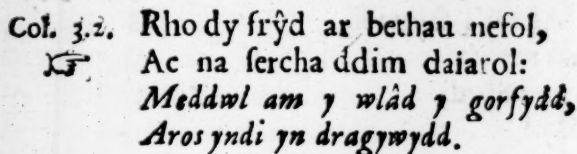 Col. 3.2. Rho dy frŷd ar bethau nefol,
☞ Ac na sercha ddim daiarol:
Meddwl am y wlâd y gorfydd,
Aros yndi yn dragywydd.